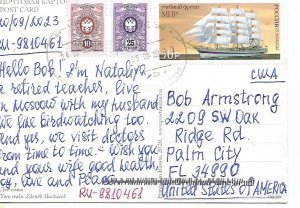 ПОЧТОВАЯ КАРТО
POST CARD
10/09/2023
RU-9810461
Hello Bob! I'm Nataliya,
a retired teacher, live
in Moscow with my husband
we like birdwatching too.
and yes, we visit doctors
from time to time. Wish you
and your wife good health,
joy, love and Peace.
Two owls. Zdeněk Macháček
RU-9810461
10
25
МИР
50 Р
РОССИЯ
США
Bob Armstrong
2209 SW Oak
Ridge Rd.
Palm City
FL 34990
United States of AMERICA